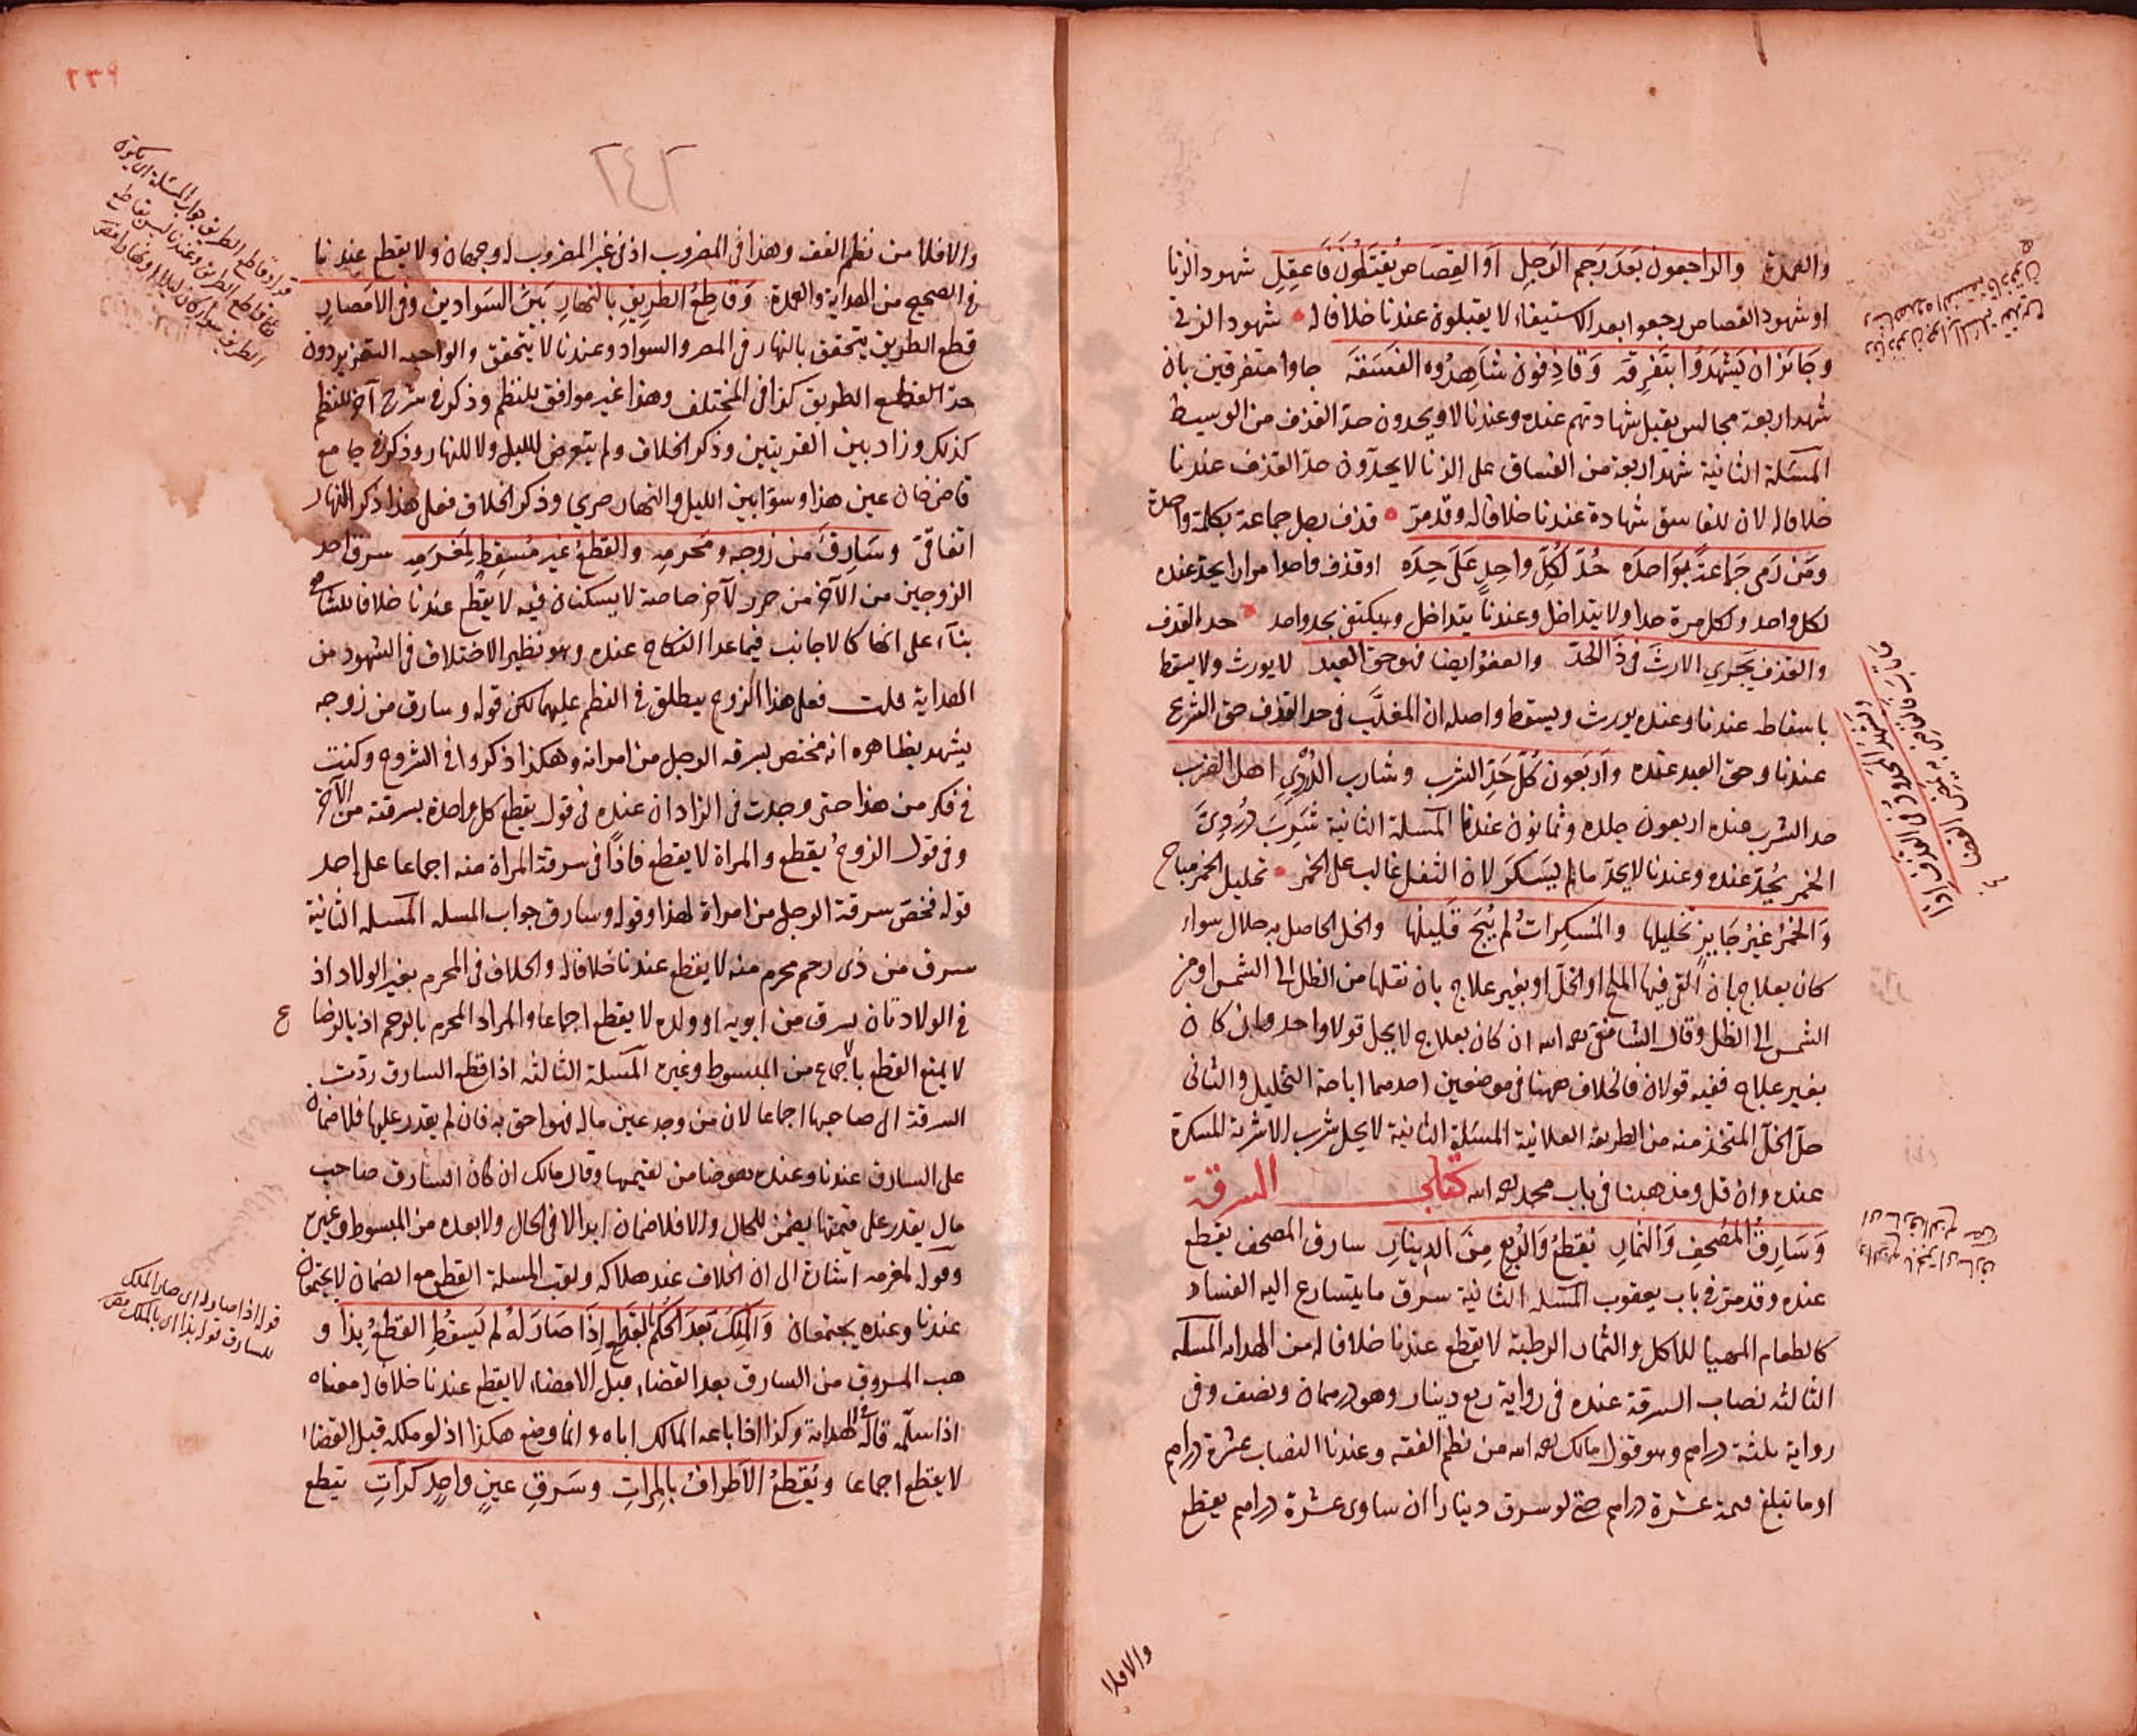 والعمدة والراجعون بعد رجم الرجل او القصاص يُقتلون فاعقل شهود الزنا
او شهود القصاص رجعوا بعد الاستيفاء لا يقبلون عندنا خلافا له شهود الزنى
وجائز ان يشهدوا بتفرقه وقاذفون شاهدوه الفسقه جاوا متفرقين بان
شهد اربعة مجالس يقبل شهادتهم عنده وعندنا لا ويحدون حد القذف من الوسيط
المسئلة الثانية شهد اربعة من الفساق على الزنا لا يحدّون حد القذف عندنا
خلافا له لان للفاسق شهادة عندنا خلافا له وقد مرّ قذف رجل جماعة بكلمة واحدة
ومَن رَمى جماعةً بواحده حُدّ لكلّ واحدٍ على حِده او قذف واحدا مرارا يحد عنده
لكل واحد ولكل مرة حدا ولا يتداخل وعندنا يتداخل ويكتفى بحد واحد حد القذف
والقذف يجري الارث في ذا الحدّ والعفو ايضا فهو حق العبد لا يورث ولا يسقط
باسقاطه عندنا وعنده يورث ويسقط واصله ان المغلّب في حد القذف حق الشرع
عندنا وحق العبد عنده واربعون كلّ حدّ الشرب وشارب الدُرْدِي اهل الضرب
حد الشرب عنده اربعون جلده وثمانون عندنا المسئلة الثانية شَرِبَ دُرْديّ
الخمر يُحدّ عنده وعندنا لا يحدّ ما لم يسكر لان الثفل غالب على الخمر تخليل الخمر مباح
والخمر غير جايز تخليلها والمسكرات لم يُبَح قليلها والخل الحاصل به حلال سواء
كان بعلاج بان القى فيها الملح او الخلّ او بغير علاج بان نقلها من الظل الى الشمس او من
الشمس الى الظل وقال الشافعى رحمه الله ان كان بعلاج لا يحل قولا واحدا وان كان
بغير علاج ففيه قولان فالخلاف ههنا في موضعين احدهما اباحة التخليل والثانى
حلّ الخلّ المتخذ منه من الطريقه العلائية المسئلة الثانية لا يحل شرب الاشربة المسكرة
عنده وان قل ومذهبنا في باب محمد رحمه الله كتاب السرقة
وسارقُ المُصحفِ والثمارِ نقطعُ والرُبعِ مِنَ الدينارِ سارق المصحف يقطع
عنده وقد مرّ في باب يعقوب المسئله الثانية سرق ما يتسارع اليه الفساد
كالطعام المهيا للاكل والثمار الرطبة لا يقطع عندنا خلافا له من الهدايه المسئله
الثالثه نصاب السرقة عنده فى رواية ربع دينار وهو درهمان ونصف وفى
رواية ثلثة دراهم وهو قول مالك رحمه الله من نظم الفقه وعندنا النصاب عشرة دراهم
او ما تبلغ قيمته عشرة دراهم حتى لو سرق دينارا ان ساوى عشرة دراهم يقطع
والا فلا
والشهد المحدود في القذف اذا
ما تاب فالقاضى به يمضى القضا
٢٣٩
٢٤٢
والا فلا من نظم الفقه وهذا فى المضروب اذ فى غير المضروب له وجهان ولا يقطع عندنا
في الصحيح من الهداية والعمدة وقاطعُ الطريقِ بالنهارِ بين السوادين وفي الامصارِ
قطع الطريق يتحقق بالنهار في المصر والسواد وعندنا لا يتحقق والواجب التعزير دون
حدّ القطع الطريق كذا في المختلف وهذا غير موافق للنظم وذكر في شرح آخر للنظم
كذلك وزاد بين القريتين وذكر الخلاف ولم يتعرض لليل ولا للنهار وذكر في جامع
قاضى خان عين هذا وسوّا بين الليل والنهار صريحا وذكر الخلاف فعلى هذا ذكر النهار
اتفاقىّ وسارقٌ من زوجه ومحرمِه والقطعُ غير مُسقِطٍ لمَغرمِه سرق احد
الزوجين من الآخر من حرز لآخر خاصة لا يسكنان فيه لا يقطع عندنا خلافا للشافعى
بناء على انها كالاجانب فيما عدا النكاح عنده وهو نظير الاختلاف في الشهود من
الهداية قلت فعلى هذا الزوج يطلق في النظم عليهما لكن قوله وسارق من زوجه
يشهد بظاهره انه مختص بسرقه الرجل من امراته وهكذا ذكروا في الشروح وكنت
في فكر من هذا حتى وجدت فى الزاد ان عنده فى قول يقطع كل واحدة بسرقته من الآخر
وفى قول الزوج يقطع والمراة لا يقطع فاذًا فى سرقة المراة منه اجماعا على احد
قوله فخص سرقة الرجل من امراة لهذا وقوله وسارق جواب المسله المسله الثانية
سرق من ذى رحم محرم منه لا يقطع عندنا خلافا له والخلاف فى المحرم بغير الولاد اذ
فى الولاد بان يسرق من ابويه او ولده لا يقطع اجماعا والمراد المحرم بالرحم اذ بالرضا
ع
لا يمنع القطع بالاجماع من المبسوط وغيره المسئلة الثالثه اذا قطع السارق ردّت
السرقة الى صاحبها اجماعا لان من وجد عين ماله فهو احق به فان لم يقدر عليها فلا ضمان
على السارق عندنا وعنده هو ضامن لقيمتها وقال مالك ان كان السارق صاحب
مال يقدر على قيمتها يضمن للحال والا فلا ضمان ابدا لا في الحال ولا بعده من المبسوط وغيره
وقوله لمغرمه اشارة الى ان الخلاف عند هلاكه ولقب المسئلة القطع مع الضمان لا يجتمعان
عندنا وعنده يجتمعان والمِلكُ بعد الحكم بالقطع إذا صارَ لهُ لم يَسقُطِ القطعُ بِذا و
هب المسروق من السارق بعد القضاء قبل الامضاء لا يقطع عندنا خلافا له معناه
اذا سلّمه قاله في الهداية وكذا اذا باعه المالك اياه وانما وضع هكذا اذ لو ملكه قبل القضاء
لا يقطع اجماعا ويُقطعُ الاطرافُ بالمراتِ وسَرقِ عينٍ واحدٍ كرّاتِ يقطع
قوله وقاطع الطريق جواب المسئلة اى يكون
قاطع الطريق وعندنا ليس بقاطع
الطريق سواء كان ليلا او نهارا
قوله اذا صار له اى صار الملك
للسارق قوله بذا اى بالملك